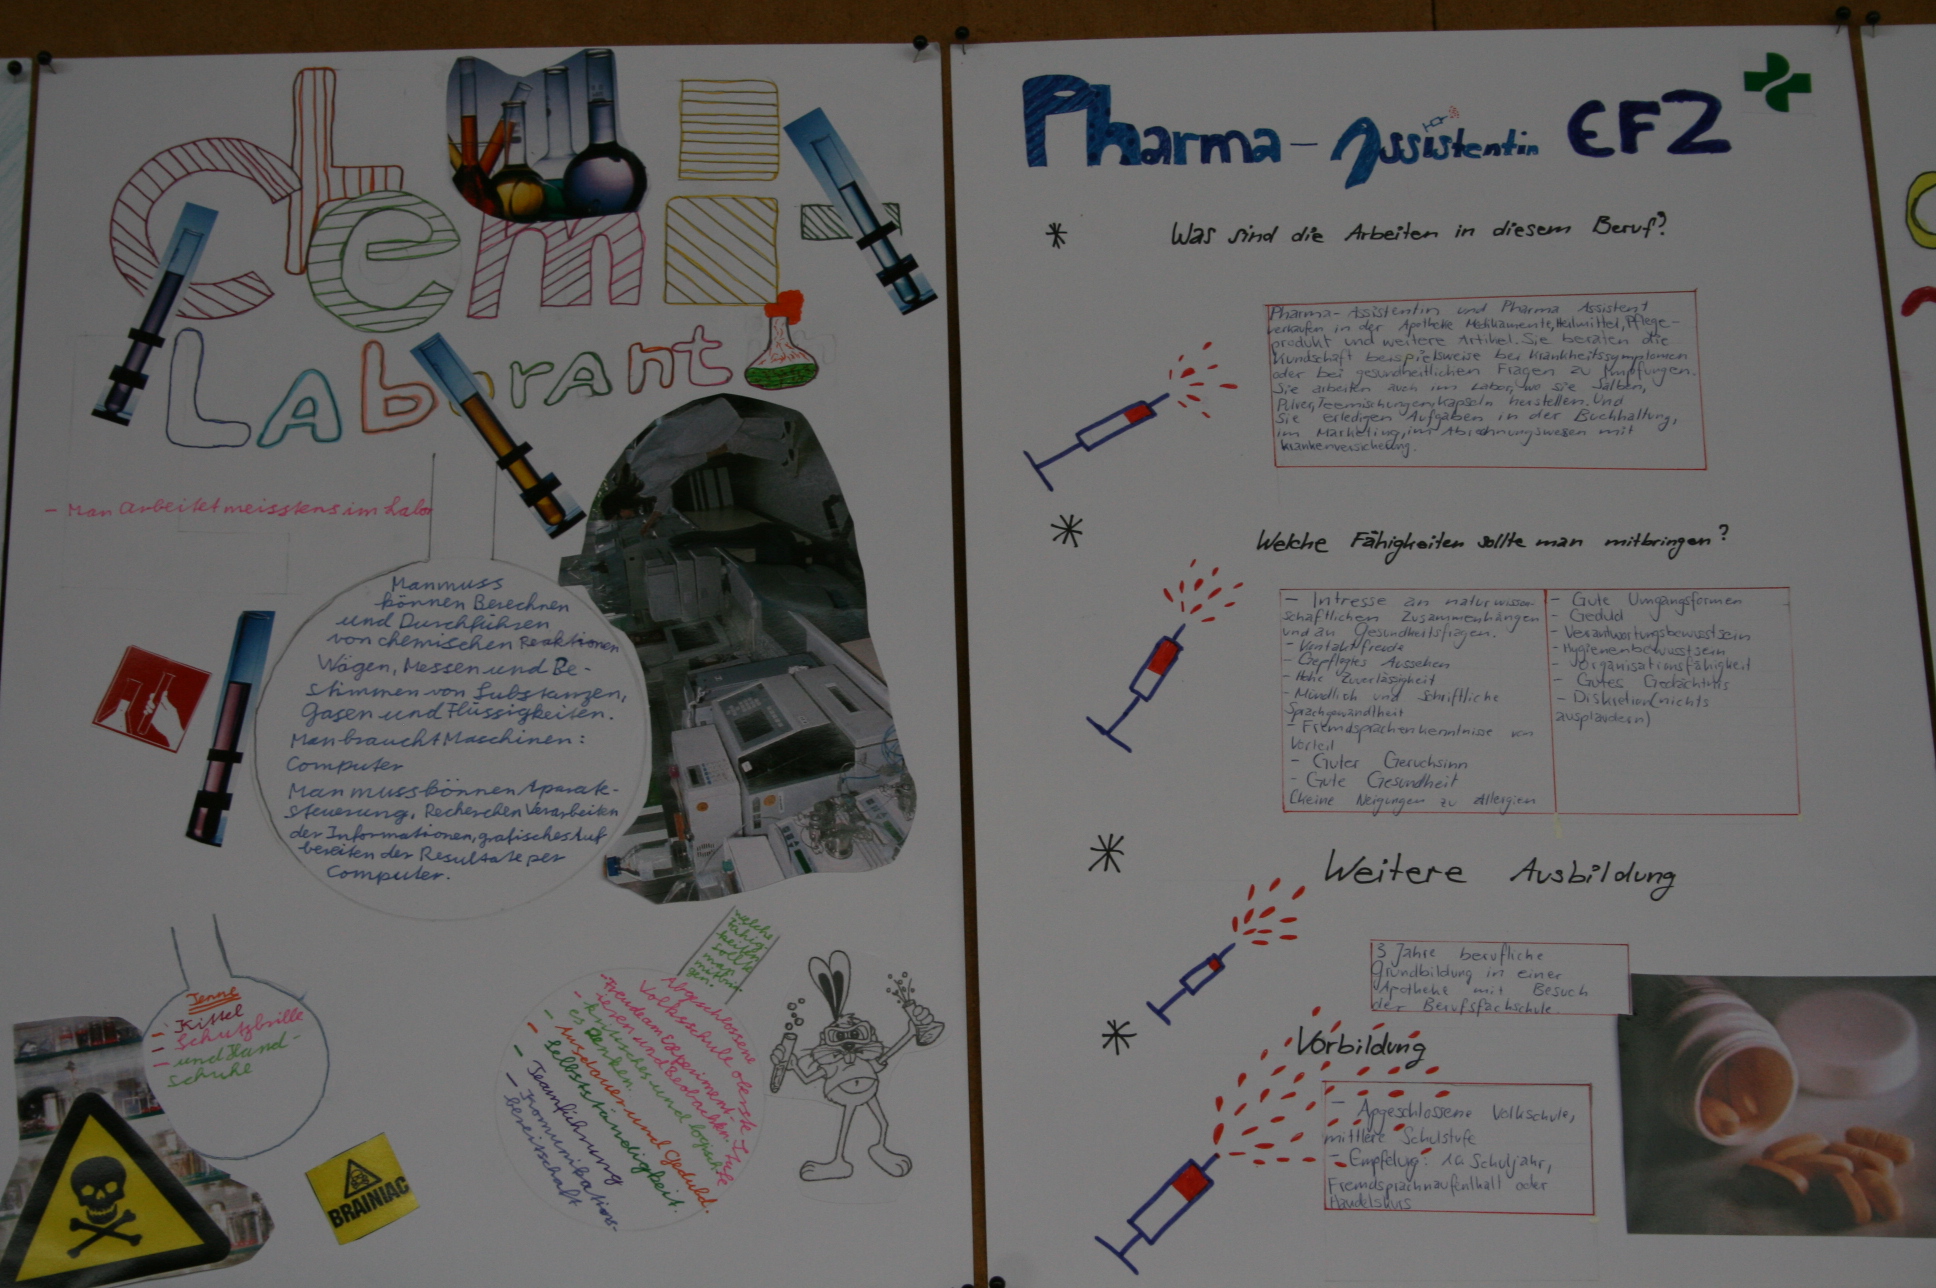 Chemi-
Laborant
- Man arbeitet meisstens im Labor
Man muss
können Berechnen
und Durchführen
von chemischen Reaktionen
Wägen, Messen und Be-
stimmen von Substanzen,
Gasen und Flüssigkeiten.
Man braucht Maschinen:
Computer
Man muss können Aparate-
steuerung, Recherchen Verarbeiten
der Informationen, grafisches Auf
bereiten der Resultate per
Computer.
- Kittel
- Schutzbrille
- und Hand-
schuhe
BRAINIAC
welche
Fähig-
keiten
sollte
man
mitbrin-
gen.
Abgeschlossene
Volksschule oberste Stufe
- Freude am Experiment-
ieren und Beobachten.
- kritisches und logisch
es Denken
- Ausdauer und Geduld.
- Selbstständigkeit.
- Teamführung
- Komunikations-
bereitschaft
Pharma-Assistentin EFZ
* Was sind die Arbeiten in diesem Beruf?
Pharma-Assistentin und Pharma Assistent
verkaufen in der Apotheke Medikamente, Heilmittel, Pflege-
produkt und weitere Artikel. Sie beraten die
Kundschaft beispielsweise bei Krankheitssymptomen
oder bei gesundheitlichen Fragen zu Impfungen.
Sie arbeiten auch im Labor, wo sie Salben,
Pulver, Teemischungen, Kapseln herstellen. Und
Sie erledigen Aufgaben in der Buchhaltung,
im Marketing, im Abrechnungswesen mit
krankenversicherung.
* Welche Fähigkeiten sollte man mitbringen?
- Intresse an naturwissen-
schaftlichen Zusammenhängen
und an Gesundheitsfragen.
- Kontaktfreude
- Gepflegtes Aussehen
- Hohe Zuverlässigkeit
- Mündlich und Schriftliche
Sprachgewandtheit
- Fremdsprachenkenntnisse von
Vorteil
- Guter Geruchsinn
- Gute Gesundheit
(keine Neigungen zu Allergien
- Gute Umgangsformen
- Geduld
- Verantwortungsbewusstsein
- Hygienenbewusstsein
- Organisationsfähigkeit
- Gutes Gedächtnis
- Diskretion (nichts
ausplaudern)
* Weitere Ausbildung
3 Jahre berufliche
Grundbildung in einer
Apotheke mit Besuch
der Berufsfachschule.
* Vorbildung
- Abgeschlossene Volkschule,
mittlere Schulstufe
- Empfelung: 10 Schuljahr,
Fremdsprachnaufenthalt oder
Handelskurs